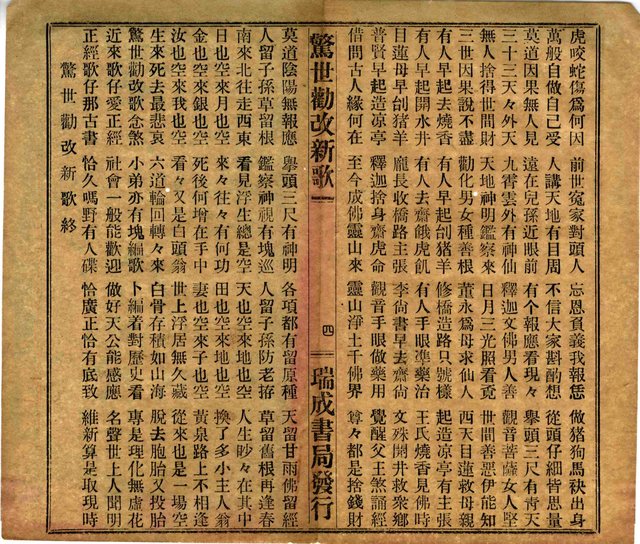 虎咬蛇傷為何因 前世冤家對頭人 忘恩負義我報恁 做猪狗馬袂出身
萬般自做自己受 人講天地有目周 不信大家斟酌想 從頭仔細皆思量
莫道因果無人見 遠在兒孫近眼前 有个報應看現々 舉頭三尺有青天
三十三天々外天 九霄雲外有神仙 釋迦文佛男人善 觀音菩薩女人堅
無人捨得世間財 天地神明鑑察來 日月三光照看覓 世間善惡伊能知
三世因果說不盡 勸化男女種善根 董永為母求仙人 西天目蓮救母親
有人早起去燒香 有人早起刣猪羊 修橋造路只號樣 起造凉亭有主張
有人早起開水井 有人去齋餓虎飢 有人手眼凖藥治 王氏燒香見佛時
目蓮母早刣猪羊 龐長收橋路主張 李尙書早去齋尙 文殊開井救衆鄉
普賢早起造凉亭 釋迦捨身齋虎命 觀音手眼做藥用 覺醒父王煞誦經
借問古人緣何在 至今成佛靈山來 靈山淨土千佛界 尊々都是捨錢財
驚世勸改新歌 四 瑞成書局發行
莫道陰陽無報應 舉頭三尺有神明 各項都有留原種 天留甘雨佛留經
人留子孫草留根 鑑察神視有塊巡 人留子孫防老拵 草留舊根再逢春
南來北往走西東 看見浮生總是空 天也空來地也空 人生吵々在其中
日也空來月也空 來々往々有何功 田也空來地也空 換了多小主人翁
金也空來銀也空 死後何增在手中 妻也空來子也空 黃泉路上不相逢
汝也空來我也空 看々又是白頭翁 世上浮居無久藏 從來也是一場空
生來死去最悲哀 六道輪回轉々來 白骨存積如山海 脫去胞胎又投胎
驚世勸改歌念煞 小弟亦有塊編歌 卜編着對歷史看 專是理化無虛花
近來歌仔愛正經 社會一般能歡迎 做好天公能感應 名聲世上人聞明
正經歌仔那古書 恰久嗎野有人碟 恰廣正恰有底致 維新算是取現時
驚世勸改新歌終